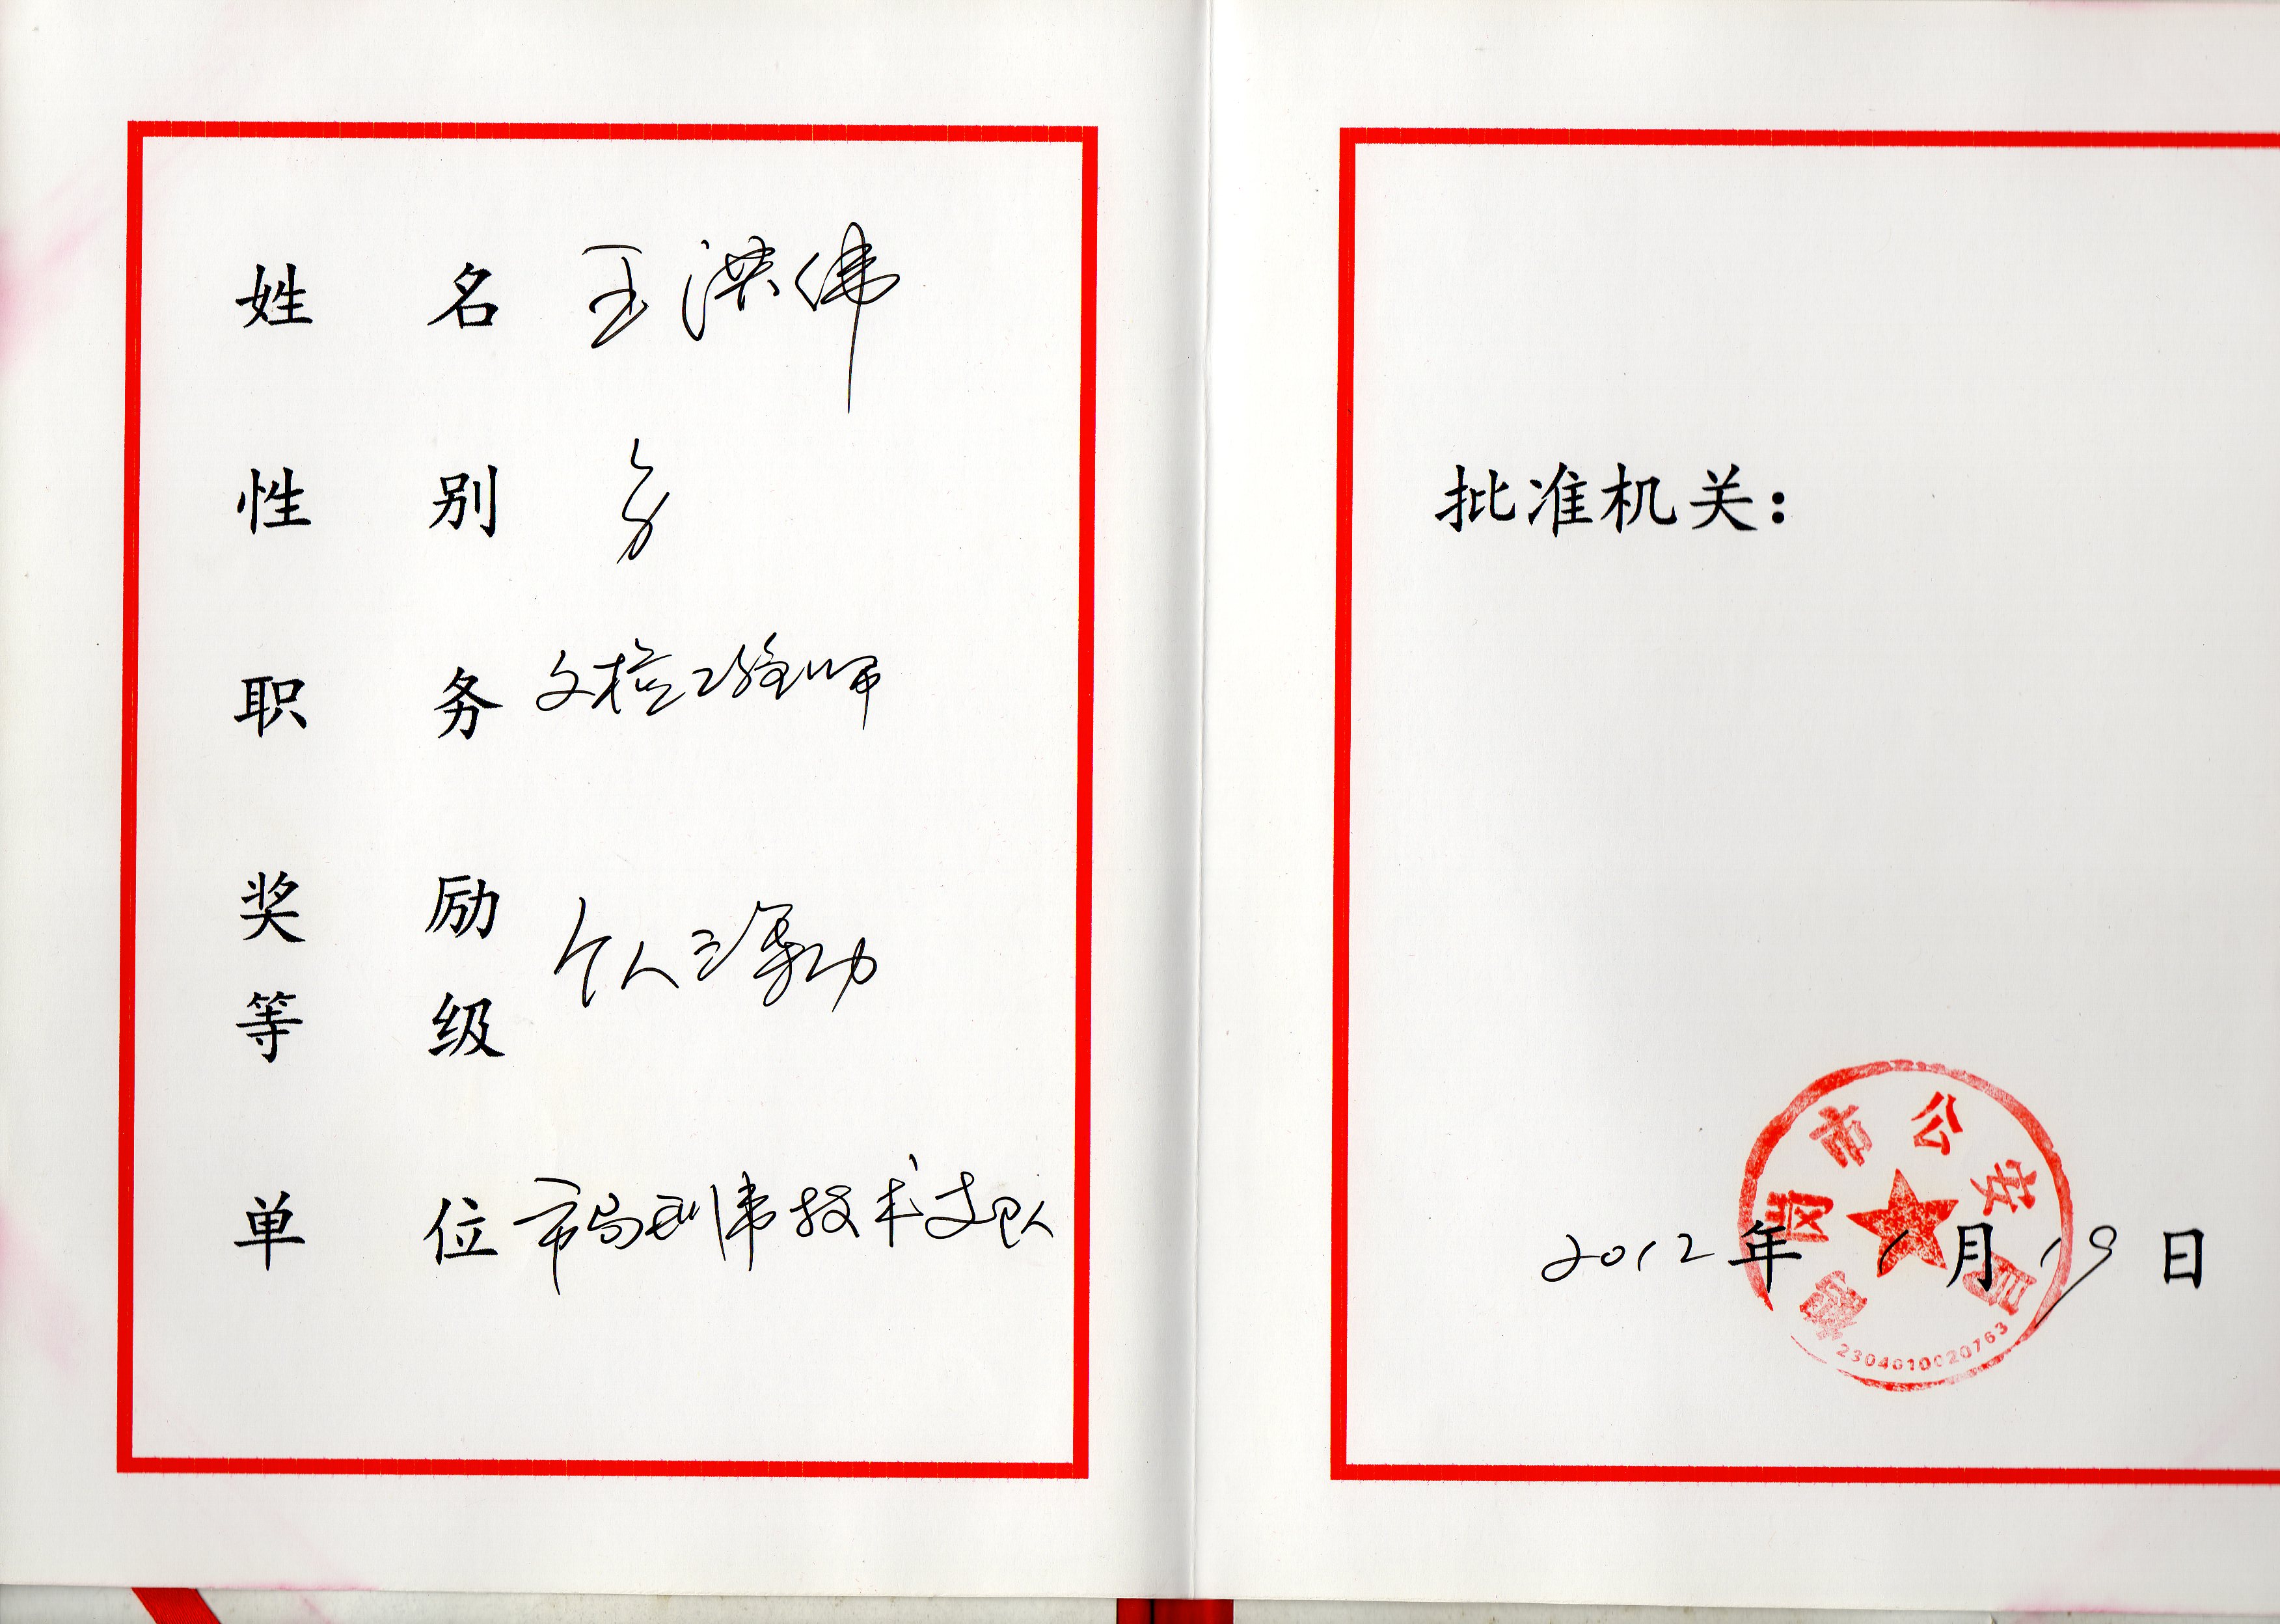 姓名 王洪伟
性别 男
职务 文检工程师
奖励等级 个人三等功
单位 市局刑事技术支队
批准机关：
鹤岗市公安局
2012年1月19日
2304010020763